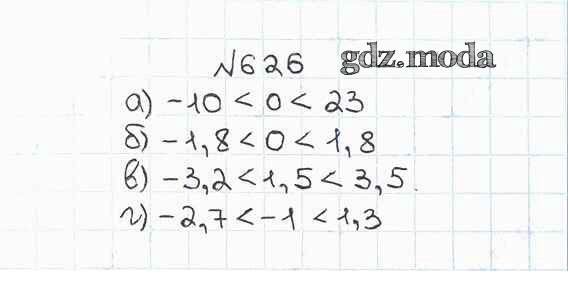 №626 gdz.moda
а) -10 < 0 < 23
б) -1,8 < 0 < 1,8
в) -3,2 < 1,5 < 3,5.
г) -2,7 < -1 < 1,3